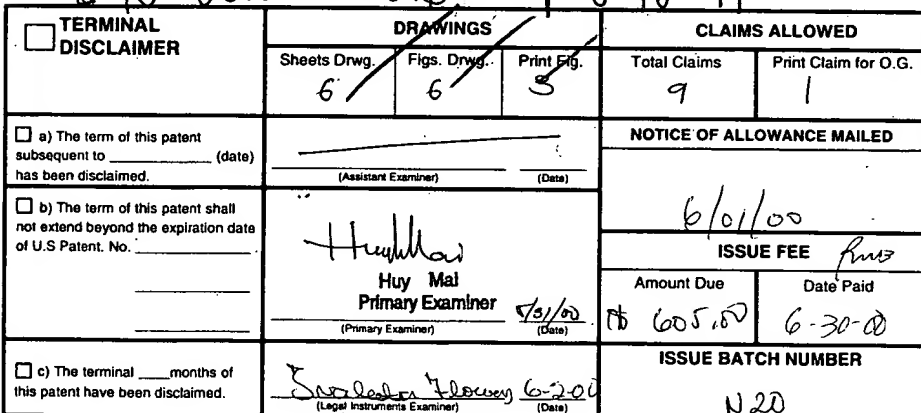 TERMINAL DISCLAIMER
DRAWINGS
CLAIMS ALLOWED
Sheets Drwg.
Figs. Drwg.
Print Fig.
Total Claims
Print Claim for O.G.
6
6
3
9
1
a) The term of this patent
subsequent to ____________ (date)
has been disclaimed.
(Assistant Examiner)
(Date)
NOTICE OF ALLOWANCE MAILED
6/01/00
b) The term of this patent shall
not extend beyond the expiration date
of U.S Patent. No. ____________
Huy Mai
Huy Mai
Primary Examiner
5/31/00
(Primary Examiner)
(Date)
ISSUE FEE
Amount Due
Date Paid
605.00
6-30-00
c) The terminal ____months of
this patent have been disclaimed.
Flowers 6-2-00
(Legal Instruments Examiner)
(Date)
ISSUE BATCH NUMBER
N20